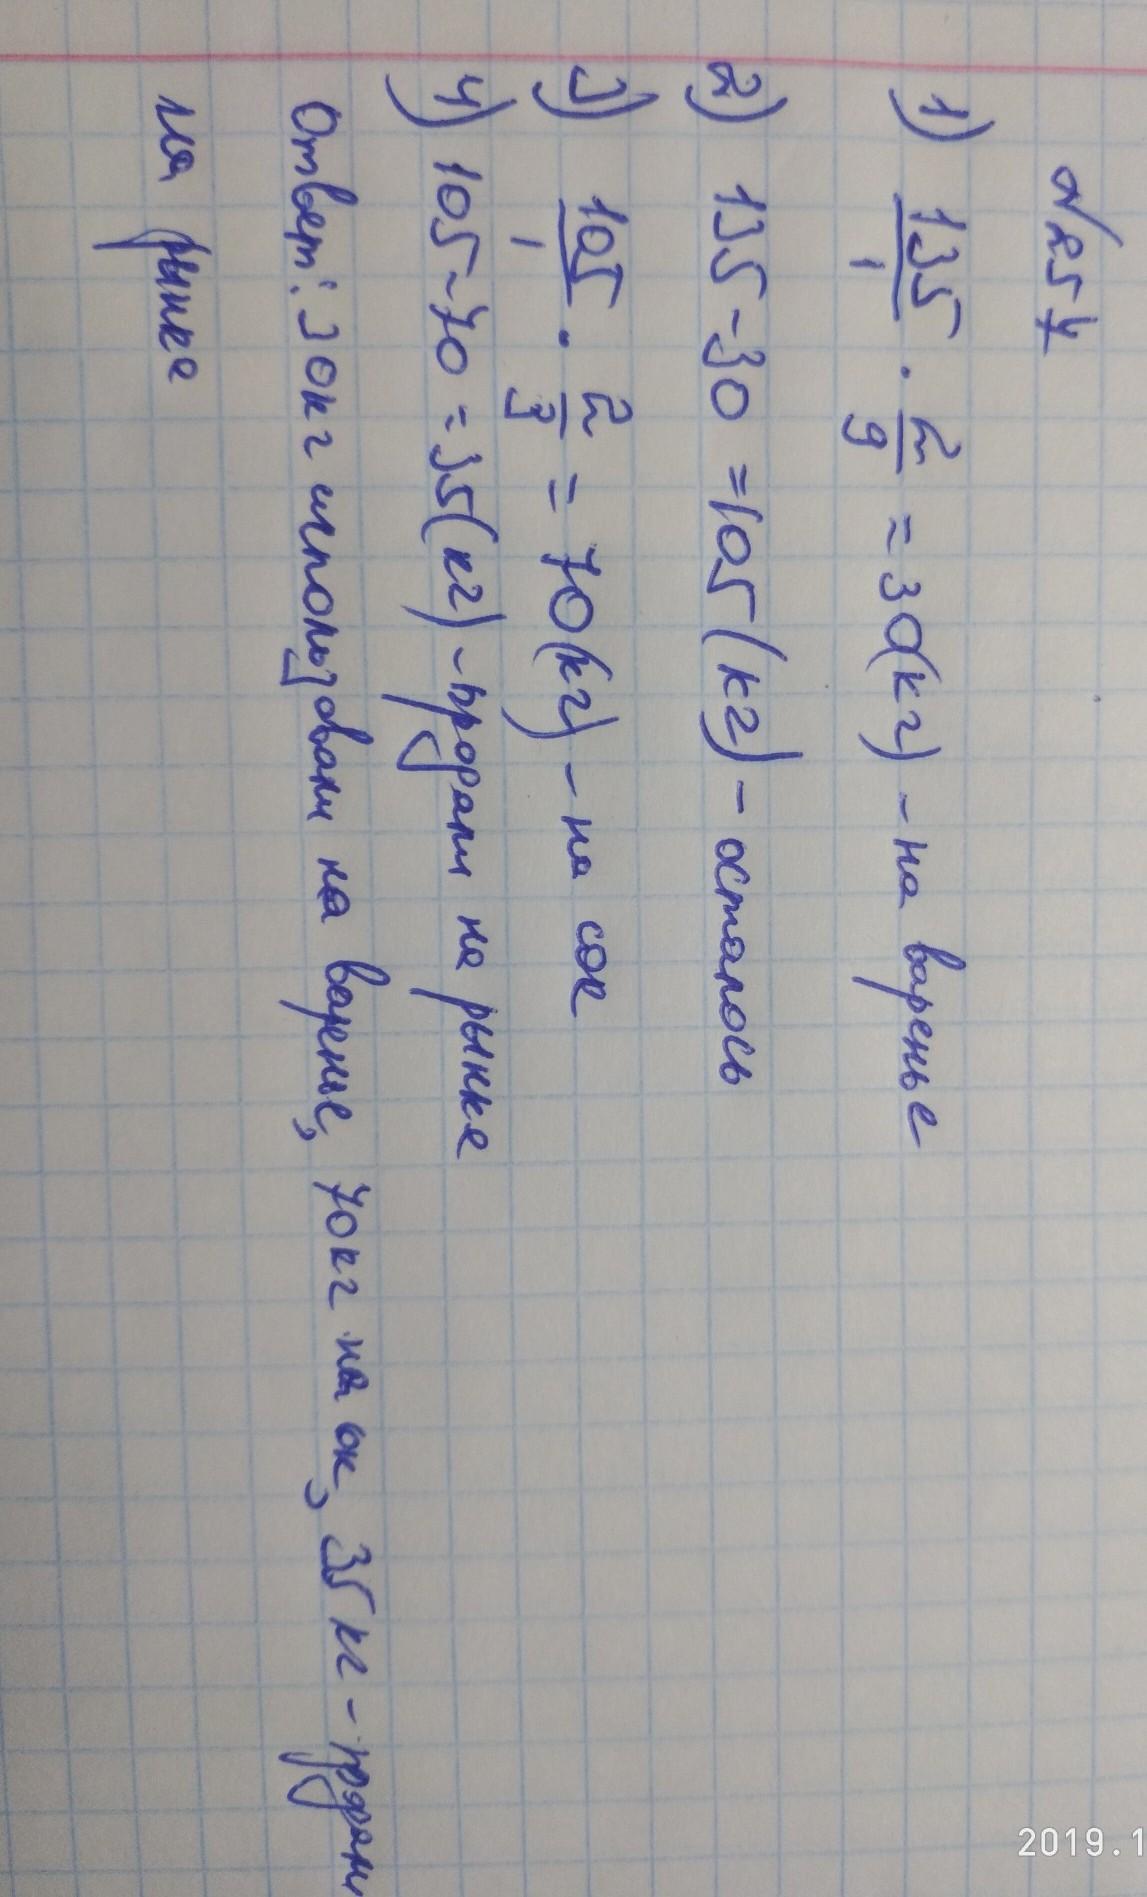 №257
1) 135/1 · 2/9 = 30(кг) - на варенье
2) 135-30=105(кг) - осталось
3) 105/1 · 2/3 = 70(кг) - на сок
4) 105-70=35(кг) - продали на рынке
Ответ: 30кг использовали на варенье, 70кг на сок, 35кг - продали
на рынке
2019.1